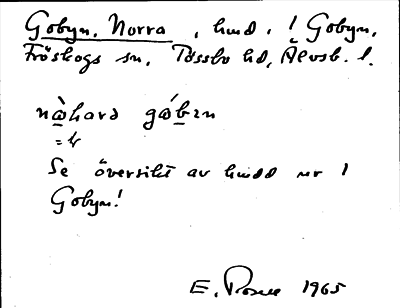 Gobyn, Norra, hmd. i Gobyn,
Fröskogs sn, Tössbo hd, Älvsb. l.
nὰhara gábεn
= tr
Se översikt av hmdd nr 1
Gobyn!
E. 1965